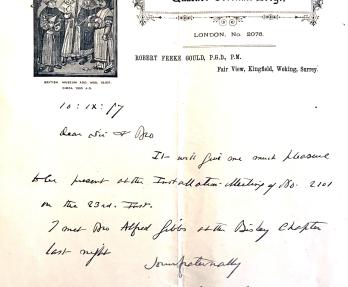 LONDON, No. 2076.
ROBERT FREKE GOULD, P.G.D., P.M.
Fair View, Kingfield, Woking, Surrey.
BRITISH MUSEUM ADD. MSS.
CIRCA 1500 A.D.
10 : IX : 97
Dear Sir & Bro
It will give me much pleasure
to be present at the Installation-Meeting of No. 2101
on the 23rd. Inst.
I met Bro Alfred Gibbs at the Bisley Chapter
last night
Yours fraternally